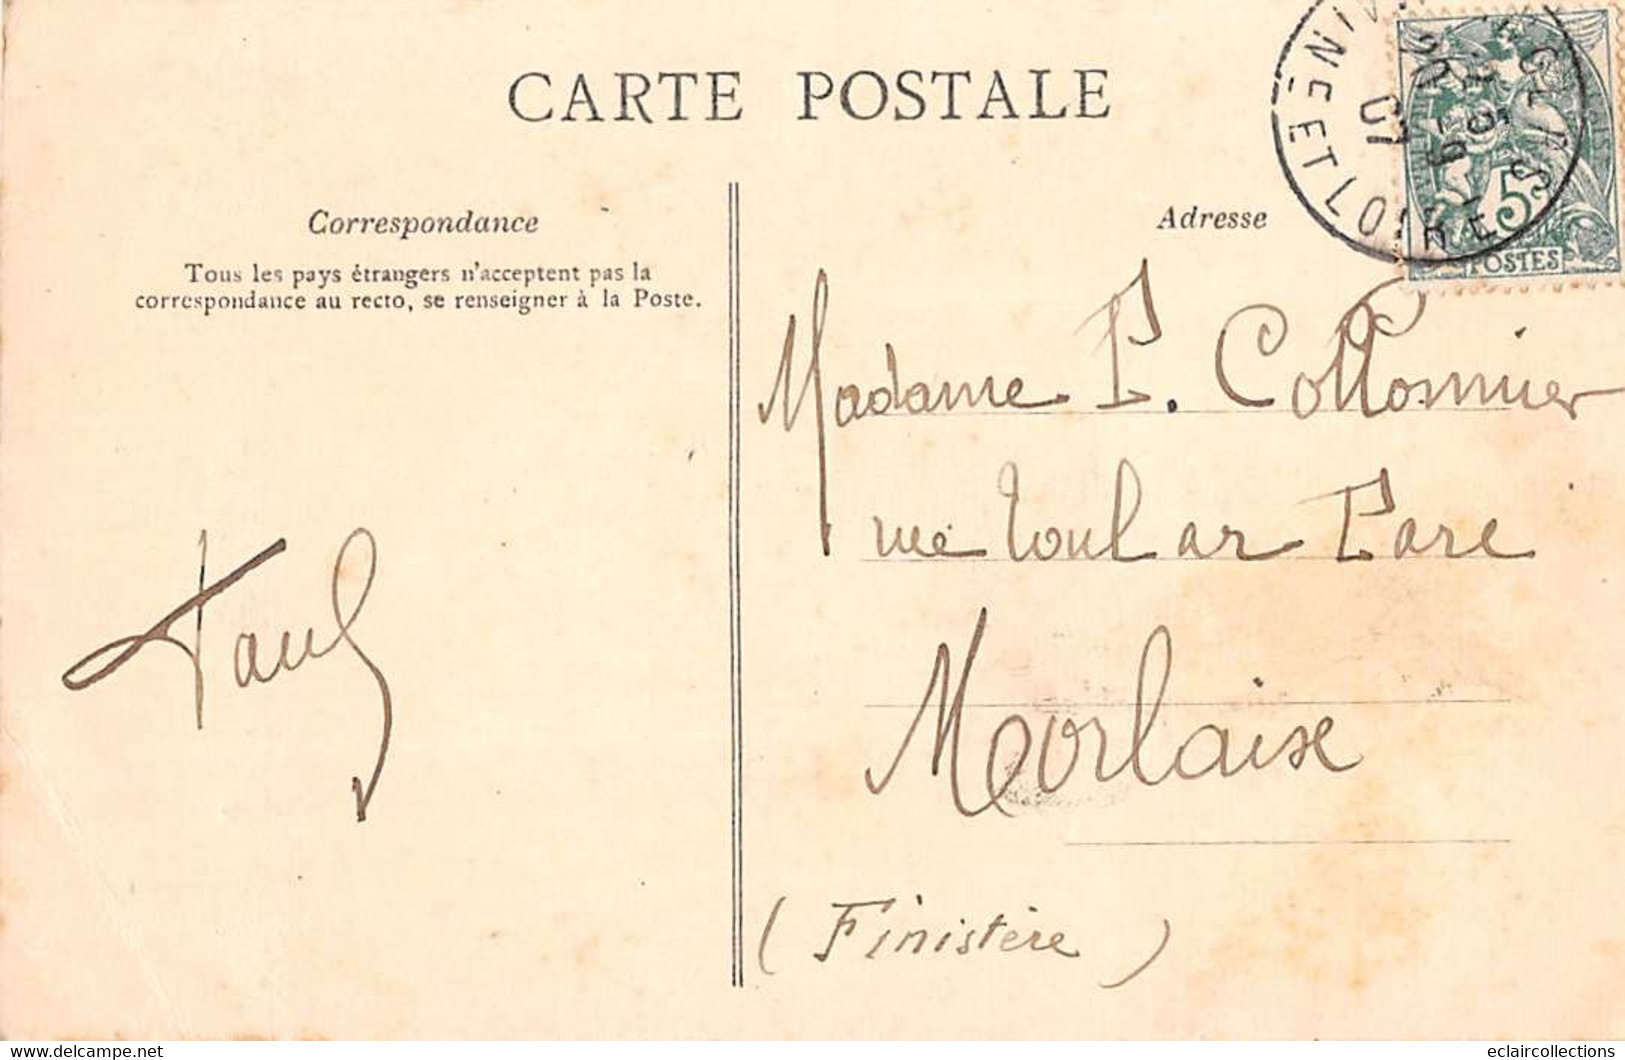 CARTE POSTALE
Correspondance
Tous les pays étrangers n'acceptent pas la
correspondance au recto, se renseigner à la Poste.
Adresse
5c
POSTES
LOIR ET CHER
07
Madame P. Collonnier
rue Toul ar Parc
Morlaix
(Finistère)
Paul
www.eclaircollections.com
eclaircollections